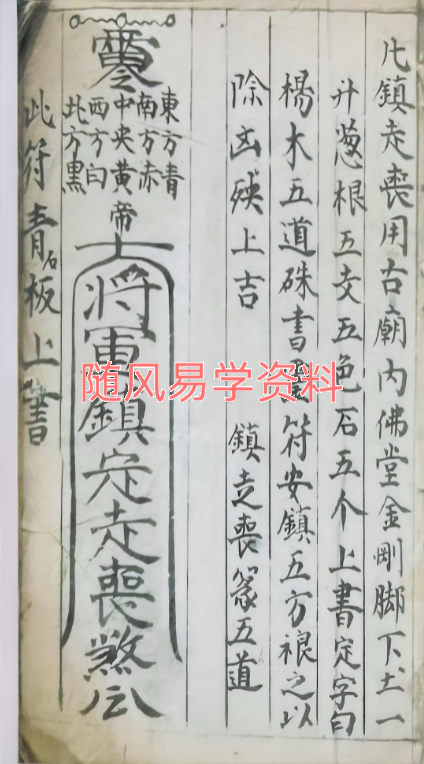 凡鎮走喪用古廟內佛堂金剛脚下土一
升葱根五支五色石五个上書定字曰
楊木五道硃書符安鎮五方禳之以
除凶殃上吉
鎮走喪篆五道
東方青
南方赤
中央黃帝
西方白
北方黑
將軍鎮定走喪煞
此符青石板上書
随风易学资料